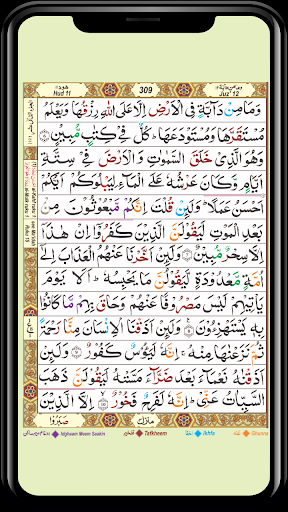 هُود ١١
Hud 11
309
Juz' 12
وَمَا مِنْ دَآبَّةٍ فِى الْاَرْضِ اِلَّا عَلَى اللّٰهِ رِزْقُهَا وَيَعْلَمُ
مُسْتَقَرَّهَا وَمُسْتَوْدَعَهَا ؕ كُلٌّ فِىْ كِتٰبٍ مُّبِيْنٍ ﴿٦﴾
وَهُوَ الَّذِىْ خَلَقَ السَّمٰوٰتِ وَالْاَرْضَ فِىْ سِتَّةِ
اَيَّامٍ وَّكَانَ عَرْشُهٗ عَلَى الْمَآءِ لِيَبْلُوَكُمْ اَيُّكُمْ
اَحْسَنُ عَمَلًا ؕ وَلَئِنْ قُلْتَ اِنَّكُمْ مَّبْعُوْثُوْنَ مِنْۢ
بَعْدِ الْمَوْتِ لَيَقُوْلَنَّ الَّذِيْنَ كَفَرُوْۤا اِنْ هٰذَاۤ
اِلَّا سِحْرٌ مُّبِيْنٌ ﴿٧﴾ وَلَئِنْ اَخَّرْنَا عَنْهُمُ الْعَذَابَ اِلٰٓى
اُمَّةٍ مَّعْدُوْدَةٍ لَّيَقُوْلُنَّ مَا يَحْبِسُهٗ ؕ اَلَا يَوْمَ
يَاْتِيْهِمْ لَيْسَ مَصْرُوْفًا عَنْهُمْ وَحَاقَ بِهِمْ مَّا كَانُوْا
بِهٖ يَسْتَهْزِءُوْنَ ﴿٨﴾ وَلَئِنْ اَذَقْنَا الْاِنْسَانَ مِنَّا رَحْمَةً
ثُمَّ نَزَعْنٰهَا مِنْهُ ۚ اِنَّهٗ لَيَئُوْسٌ كَفُوْرٌ ﴿٩﴾ وَلَئِنْ
اَذَقْنٰهُ نَعْمَآءَ بَعْدَ ضَرَّآءَ مَسَّتْهُ لَيَقُوْلَنَّ ذَهَبَ
السَّيِّاٰتُ عَنِّىْ ؕ اِنَّهٗ لَفَرِحٌ فَخُوْرٌ ﴿١٠﴾ اِلَّا الَّذِيْنَ
صَبَرُوْا
منزل ٣
Idgheam Meem Saakin
Tatkheem
Ikhfa
Ghunna